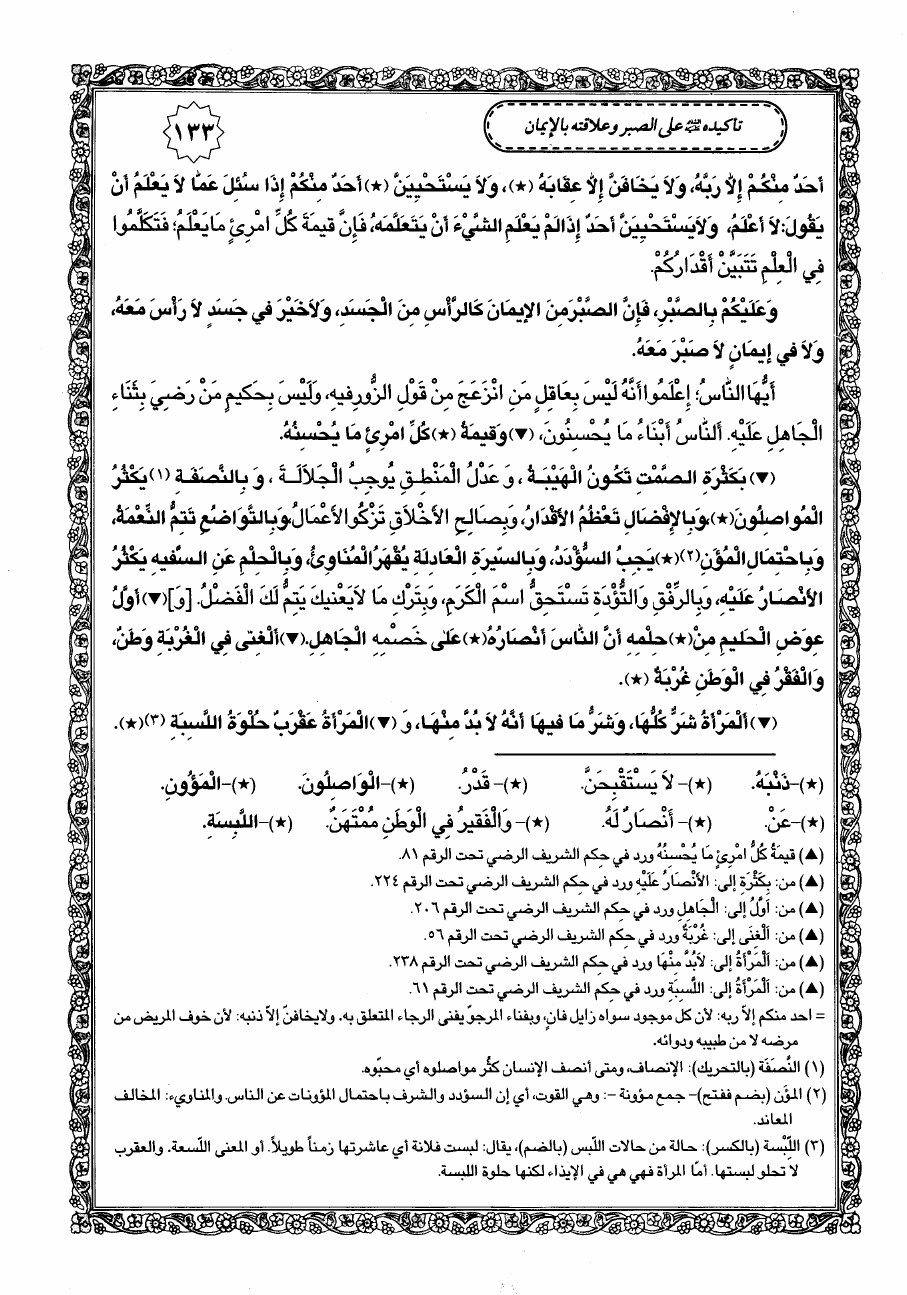 تاكيده ﷺ على الصبر وعلاقته بالإيمان
١٣٣
أَحَدٌ مِنْكُمْ إِلاَّ رَبَّهُ، وَلاَ يَخَافَنَّ إِلاَّ عِقَابَهُ (★)، وَلاَ يَسْتَحْيِيَنَّ (★) أَحَدٌ مِنْكُمْ إِذَا سُئِلَ عَمَّا لاَ يَعْلَمُ أَنْ
يَقُولَ: لاَ أَعْلَمُ، وَلاَيَسْتَحْيِيَنَّ أَحَدٌ إِذَالَمْ يَعْلَمِ الشَّيْءَ أَنْ يَتَعَلَّمَهُ، فَإِنَّ قيمَةَ كُلِّ امْرِئٍ مَايَعْلَمُ؛ فَتَكَلَّمُوا
فِي الْعِلْمِ تَتَبَيَّنْ أَقْدَارُكُمْ.
وَعَلَيْكُمْ بِالصَّبْرِ، فَإِنَّ الصَّبْرَمِنَ الإيمَانِ كَالرَّأْسِ مِنَ الْجَسَدِ، وَلاَخَيْرَ في جَسَدٍ لاَ رَأْسَ مَعَهُ،
وَلاَ في إيمَانٍ لاَ صَبْرَ مَعَهُ.
أَيُّهَاالنَّاسُ؛ إِعْلَمُواأَنَّهُ لَيْسَ بِعَاقِلٍ مَنِ انْزَعَجَ مِنْ قَوْلِ الزُّورِفيهِ، وَلَيْسَ بِحَكيمٍ مَنْ رَضِيَ بِثَنَاءِ
الْجَاهِلِ عَلَيْهِ. اَلنَّاسُ أَبْنَاءُ مَا يُحْسِنُونَ، (▼) وَقيمَةُ (★) كُلِّ امْرِئٍ مَا يُحْسِنُهُ.
(▼) بِكَثْرَةِ الصَّمْتِ تَكُونُ الْهَيْبَةُ، وَ عَدْلُ الْمَنْطِقِ يُوجِبُ الْجَلاَلَةَ، وَ بِالنَّصَفَةِ (١) يَكْثُرُ
الْمُوَاصِلُونَ (★)،وَبِالإِفْضَالِ تَعْظُمُ الأَقْدَارُ، وَبِصَالِحِ الأَخْلاَقِ تَزْكُوالأَعْمَالُ،وَبِالتَّوَاضُعِ تَتِمُّ النِّعْمَةُ،
وَبِاحْتِمَالِ الْمُؤَنِ (٢) (★) يَجِبُ السُّؤْدَدُ، وَبِالسّيرَةِ الْعَادِلَةِ يُقْهَرُ الْمُنَاوِئُ، وَبِالْحِلْمِ عَنِ السَّفيهِ يَكْثُرُ
الأَنْصَارُ عَلَيْهِ، وَبِالرِّفْقِ وَالتُّؤَدَةِ تَسْتَحِقُّ اسْمَ الْكَرَمِ، وَبِتَرْكِ مَا لاَيَعْنيكَ يَتِمُّ لَكَ الْفَضْلُ. [وَ] (▼) أَوَّلُ
عِوَضِ الْحَليمِ مِنْ (★) حِلْمِهِ أَنَّ النَّاسَ أَنْصَارُهُ (★) عَلى خَصْمِهِ الْجَاهِلِ. (▼) اَلْغِنى فِي الْغُرْبَةِ وَطَنٌ،
وَالْفَقْرُ فِي الْوَطَنِ غُرْبَةٌ (★).
(▼) اَلْمَرْأَةُ شَرٌّ كُلُّهَا، وَشَرُّ مَا فيهَا أَنَّهُ لاَ بُدَّ مِنْهَا، وَ (▼) الْمَرْأَةُ عَقْرَبٌ حُلْوَةُ اللَّسِبَةِ (٣) (★).
(★)-ذَنْبَهُ. (★)- لاَ يَسْتَقْبِحَنَّ. (★)- قَدْرُ. (★)- الْوَاصِلُونَ. (★)- الْمَؤُونِ.
(★)-عَنْ. (★)- أَنْصَارٌ لَهُ. (★)- وَالْفَقيرُ فِي الْوَطَنِ مُمْتَهَنٌ. (★)- اللَّبِسَةِ.
(▲) قيمَةُ كُلُّ امْرِئٍ مَا يُحْسِنُهُ ورد في حكم الشريف الرضي تحت الرقم ٨١.
(▲) من: بِكَثْرَةِ إلى: الأَنْصَارُ عَلَيْهِ ورد في حكم الشريف الرضي تحت الرقم ٢٢٤.
(▲) من: أَوَّلُ إلى: الْجَاهِلِ ورد في حكم الشريف الرضي تحت الرقم ٢٠٦.
(▲) من: اَلْغِنَى إلى: غُرْبَةٌ ورد في حكم الشريف الرضي تحت الرقم ٥٦.
(▲) من: اَلْمَرْأَةُ إلى: لاَبُدَّ مِنْهَا ورد في حكم الشريف الرضي تحت الرقم ٢٣٨.
(▲) من: اَلْمَرْأَةُ إلى: اللَّسِبَةِ ورد في حكم الشريف الرضي تحت الرقم ٦١.
= احد منكم إلاّ ربه: لأن كل موجود سواه زايل فانٍ، وبفناء المرجوّ يفنى الرجاء المتعلق به. ولايخافنّ إلاّ ذنبه: لأن خوف المريض من
مرضه لا من طبيبه ودوائه.
(١) النَّصَفَة (بالتحريك): الإنصاف، ومتى أنصف الإنسان كثُر مواصلوه أي محبّوه.
(٢) المؤَن (بضم ففتح)- جمع مؤونة -: وهي القوت، أي إن السؤدد والشرف باحتمال المؤونات عن الناس. والمناويء: المخالف
المعاند.
(٣) اللِّبْسة (بالكسر): حالة من حالات اللُبس (بالضم)، يقال: لبست فلانة أي عاشرتها زمناً طويلاً. أو المعنى اللّسعة. والعقرب
لا تحلو لبستها. أمّا المرأة فهي هي في الإيذاء لكنها حلوة اللبسة.